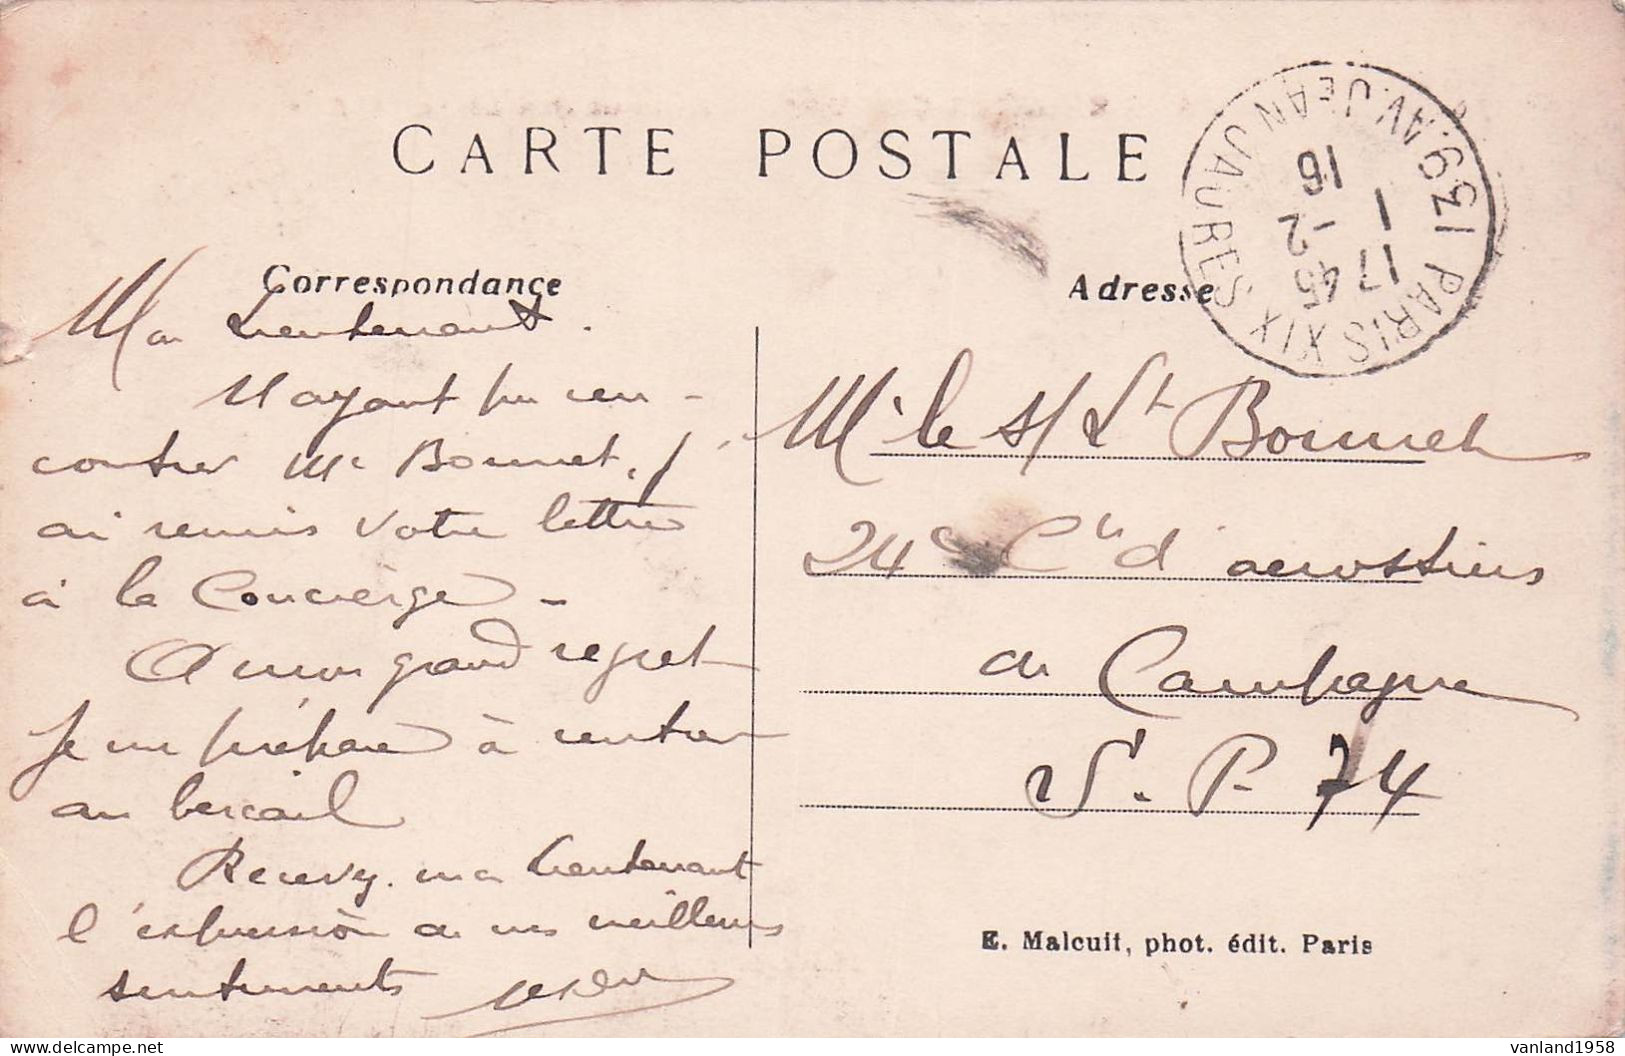 CARTE POSTALE
Correspondance
Mon Lieutenant.
N'ayant pu ren-
contrer Mr Bonnet, j'
ai remis votre lettre
à la Concierge -
A mon grand regret
je me prépare à rentrer
au bercail
Recevez, mon Lieutenant
l'expression de mes meilleurs
sentiments
Adresse
Mr le s/Lt Bonnet
24e Cie d'aerostiers
de Campagne
S. P. 74
PARIS XIX
139 AV. JEAN JAURES XIX
17 45
1 -2
16
E. Malcuit, phot. édit. Paris
vanland1958